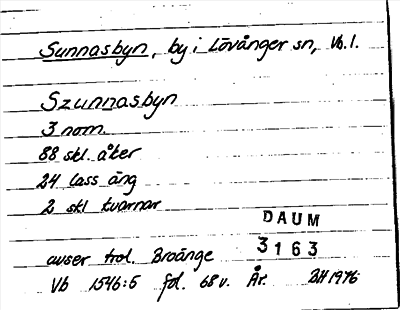 Sunnasbyn, by i Lövånger sn, Vb. l.
Szunnasbyn
3 nom.
88 skl. åker
24 lass äng
2 skl kvarnar
DAUM
3163
avser trol. Broänge
Vb 1546:5 fol. 68 v. År. BH 1976